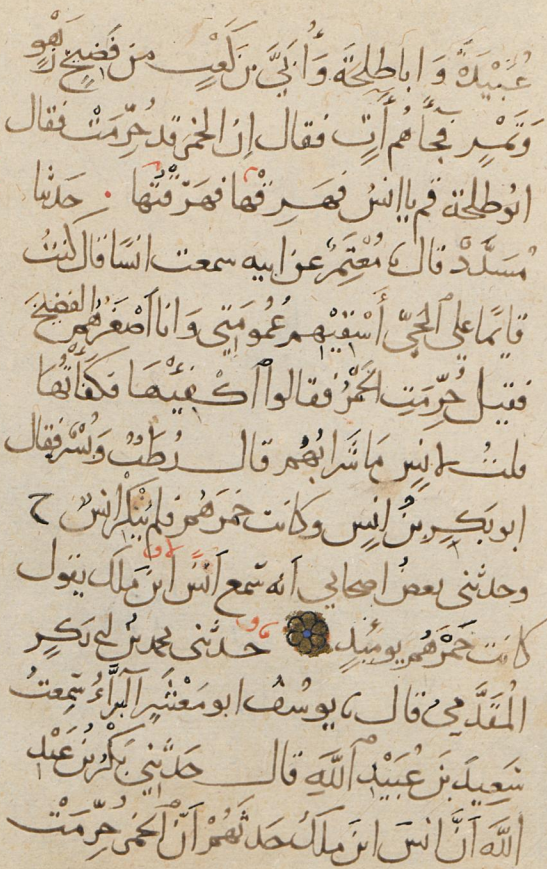 عُبَيْدَةَ وَابا طلحة وَأُبَيَّ بنَ كَعْبٍ من فَضِيخِ زَهْوٍ
وَتَمْرٍ فَجَآءَهُم أَتٍ فقال اِنَّ الخمر قد حُرِّمَتْ فقال
ابو طلحة قم يا انسُ فَهَرِقْها فَهَرَقْتُها . حَدثنا
مُسَدَّدٌ قال ثنا مُعْتَمِرٌ عن ابيه سمعت انسًا قال كنتُ
قايمًا على الحَيِّ أَسْقِيْهِم عُمُومَتِي وَانا اَصْغَرُهُم الفَضِيخَ
فقيل حُرِّمَتِ الخَمْرُ فقالوا اَكْفِئْهَا فكَفَأْتُهَا
قلتُ لانسٍ مَا شَرَابُهُم قال رُطَبٌ وَبُسْرٌ فقال
ابو بَكرِ بنُ اَنسٍ وكانت خمرَهُم فلم يُنْكِرْ انسٌ ح
وحدثنى بعضُ اصحابي اَنه سَمع اَنَسَ ابنَ ملك يقول
كانت خَمْرَهُم يومئِذٍ حدثنى محمد بنُ ابي بَكرٍ
المُقَدَّمِيُّ قال ثنا يوسُفُ ابو مَعْشَرٍ البَرَّاءُ سَمِعتُ
سَعِيدَ بنَ عُبَيْدِ اَللَّهِ قال حَدثنِي بَكْرُ بنُ عَبْدِ
اَللَّهِ اَنَّ انسَ ابنَ ملكٍ حَدثَهُمْ اَنَّ اَلخمرَ حُرِّمَتْ